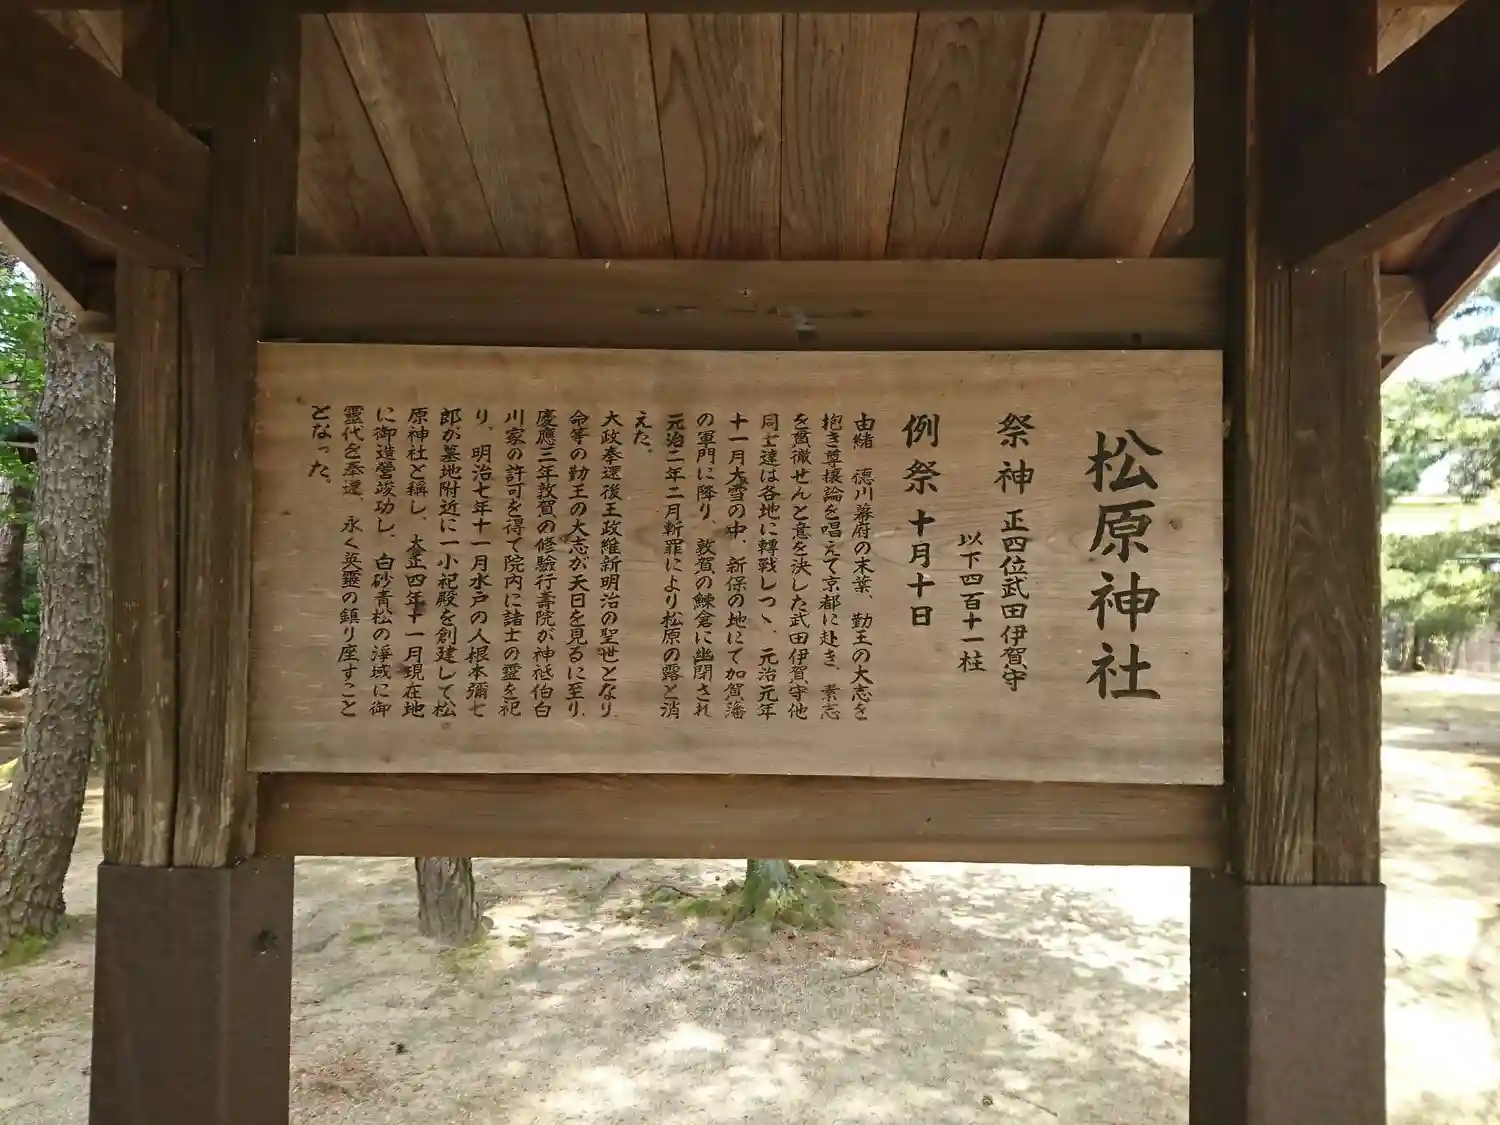 松原神社
祭神 正四位武田伊賀守
以下四百十一柱
例祭 十月十日
由緒 德川幕府の末葉、勤王の大志を
抱き尊攘論を唱えて京都に赴き、素志
を貫徹せんと意を決した武田伊賀守他
同士達は各地に轉戰しつゝ、元治元年
十一月大雪の中、新保の地にて加賀藩
の軍門に降り、敦賀の鰊倉に幽閉され
元治二年二月斬罪により松原の露と消
えた。
大政奉還後王政維新明治の聖世となり
命等の勤王の大志が天日を見るに至り、
慶應三年敦賀の修驗行壽院が神祗伯白
川家の許可を得て院内に諸士の靈を祀
り、明治七年十一月水戸の人根本彌七
郎が墓地附近に一小祀殿を創建して松
原神社と稱し、大正四年十一月現在地
に御造營竣功し、白砂青松の淨域に御
靈代を奉遷、永く英靈の鎮り座すこと
となった。